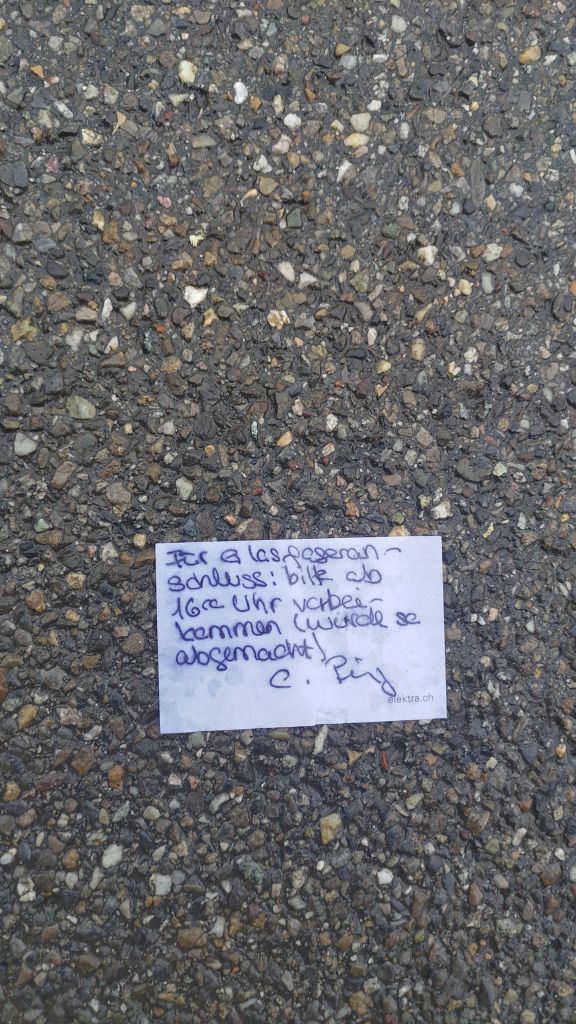 Für Glasfaseran-
schluss: bitte ab
16 Uhr vorbei-
kommen (wurde so
abgemacht)
C.
elektra.ch